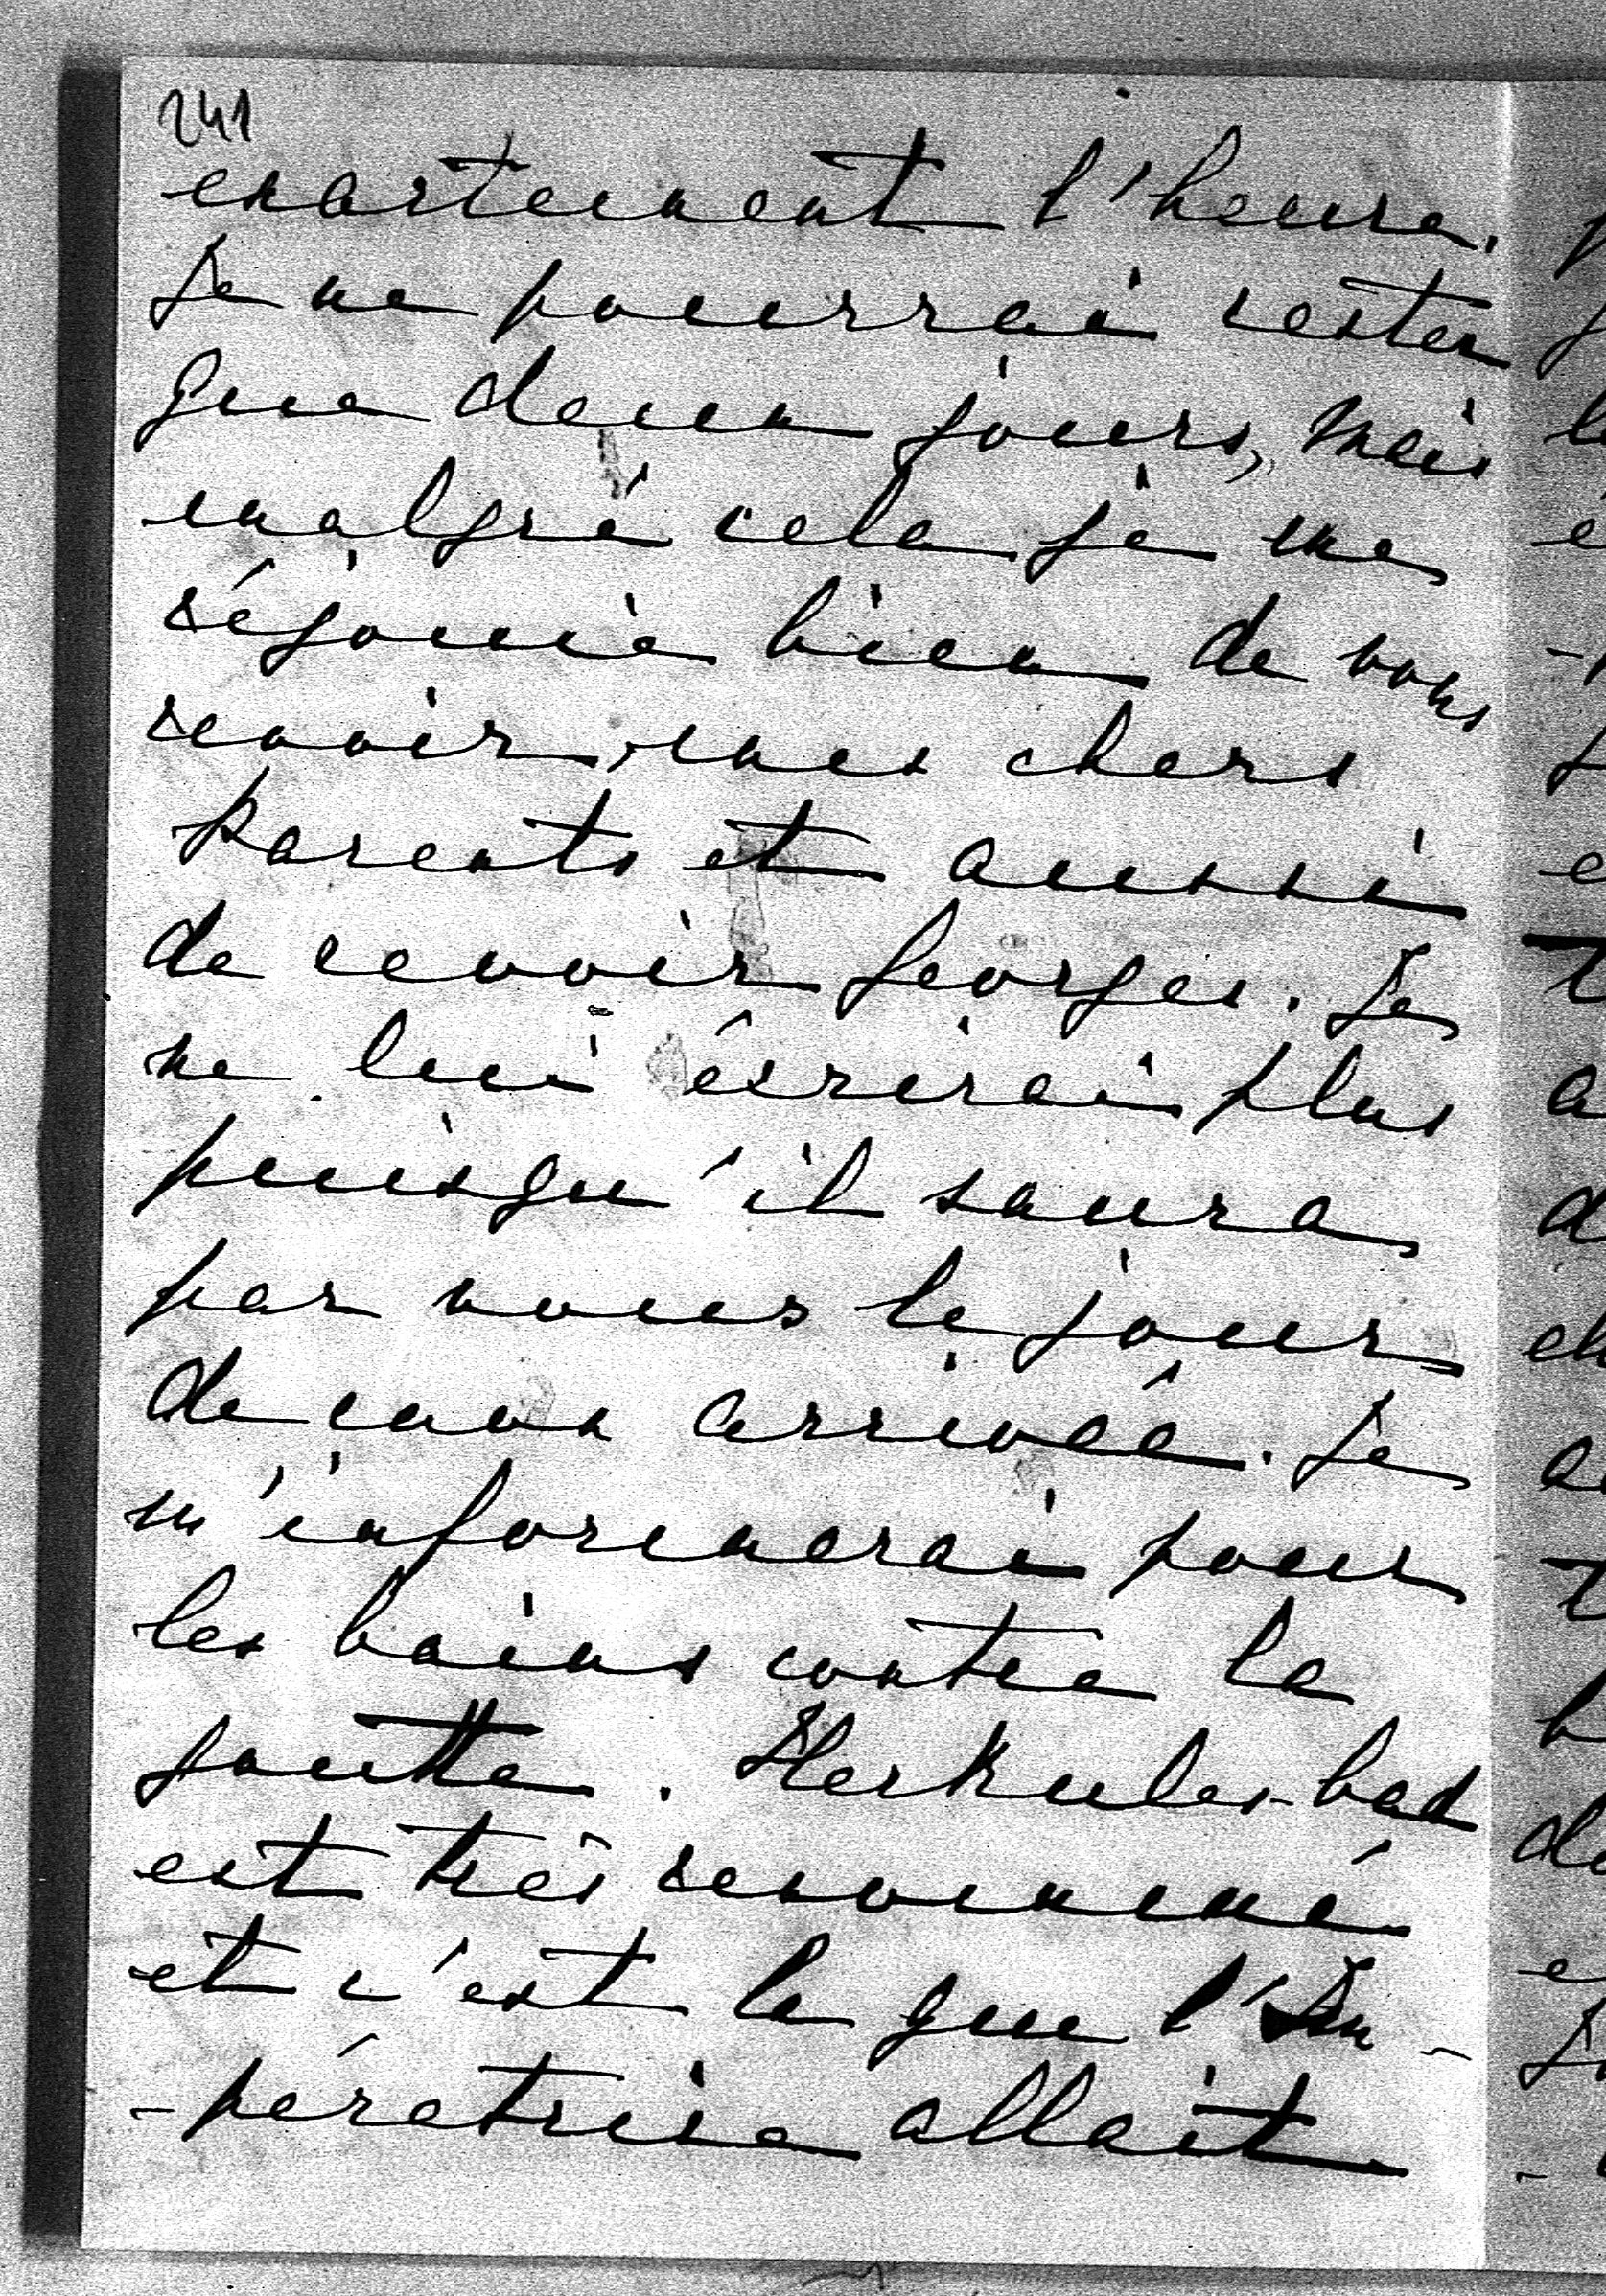 241
exactement l'heure.
Je ne pourrai rester
que deux jours, mais
malgré cela je me
réjouie bien de vous
revoir, mes chers
Parents et aussi
de revoir Georges. Je
ne lui écrirai plus
puisqu'il saura
par vous le jour
de mon arrivée. Je
m'informerai pour
les bains contre la
goutte. Herkules-bad
est très renommé
et c'est la que l'Im-
-pératrice allait